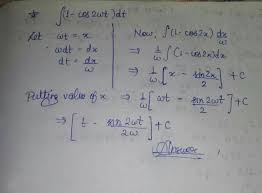 * ∫(1 - cos2wt)dt
Let wt = x
wdt = dx
dt = dx/w
Now, ∫(1 - cos2x) dx/w
⇒ 1/w ∫(1 - cos2x)dx
⇒ 1/w [x - sin2x/2] + C
Putting value of x ⇒ 1/w [wt - sin2wt/2] + C
⇒ [t - sin2wt/2w] + C
Answer